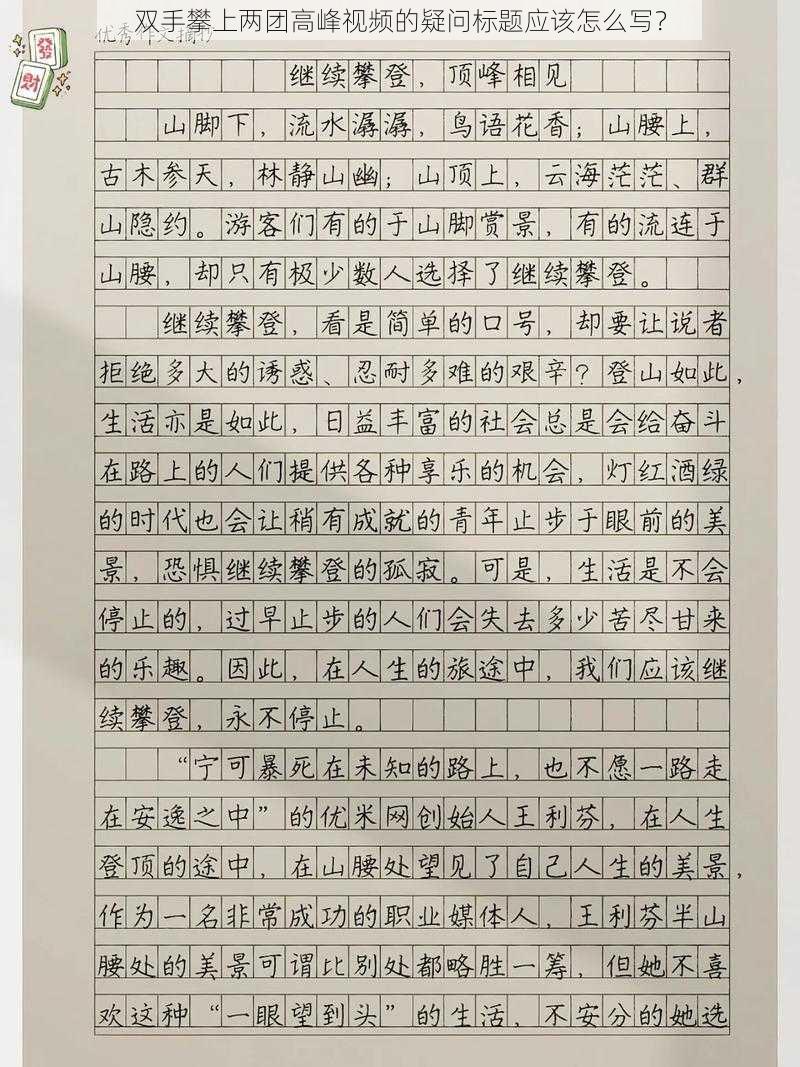 双手攀上两团高峰视频的疑问标题应该怎么写?
优秀作文摘抄
發
財
继续攀登，顶峰相见
山脚下，流水潺潺，鸟语花香；山腰上，
古木参天，林静山幽；山顶上，云海茫茫、群
山隐约。游客们有的于山脚赏景，有的流连于
山腰，却只有极少数人选择了继续攀登。
继续攀登，看是简单的口号，却要让说者
拒绝多大的诱惑、忍耐多难的艰辛？登山如此，
生活亦是如此，日益丰富的社会总是会给奋斗
在路上的人们提供各种享乐的机会，灯红酒绿
的时代也会让稍有成就的青年止步于眼前的美
景，恐惧继续攀登的孤寂。可是，生活是不会
停止的，过早止步的人们会失去多少苦尽甘来
的乐趣。因此，在人生的旅途中，我们应该继
续攀登，永不停止。
“宁可暴死在未知的路上，也不愿一路走
在安逸之中”的优米网创始人王利芬，在人生
登顶的途中，在山腰处望见了自己人生的美景，
作为一名非常成功的职业媒体人，王利芬半山
腰处的美景可谓比别处都略胜一筹，但她不喜
欢这种“一眼望到头”的生活，不安分的她选